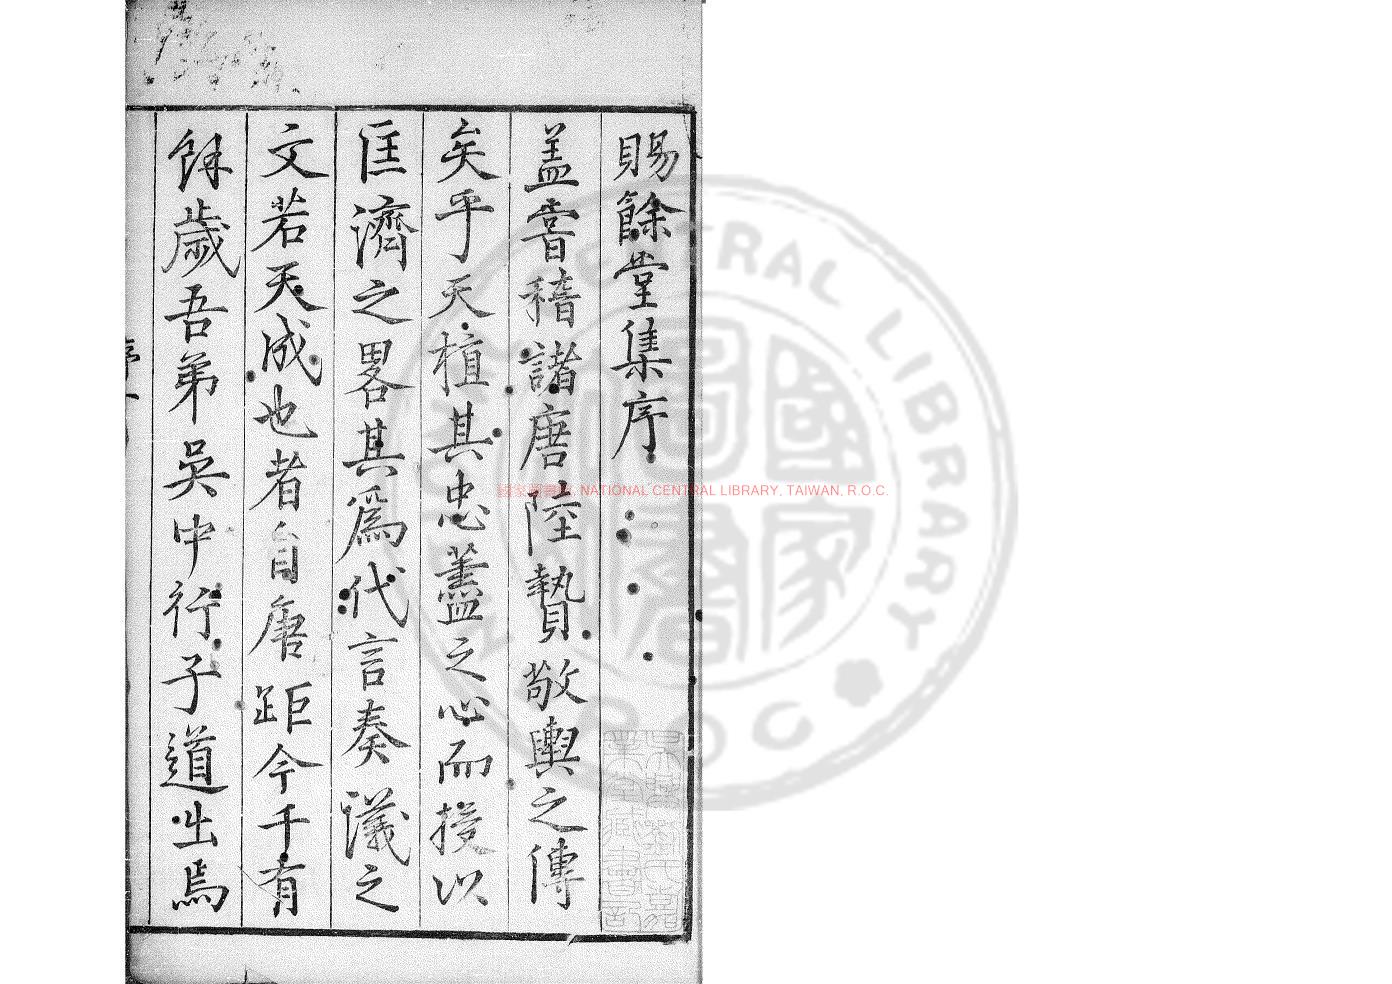 賜餘堂集序
蓋嘗稽諸唐陸贄敬輿之傳
矣乎天植其忠藎之心而授以
匡濟之畧其爲代言奏議之
文若天成也者自唐距今千有
餘歲吾弟吳中行子道出焉
國家圖書館, NATIONAL CENTRAL LIBRARY, TAIWAN, R.O.C.
CENTRAL LIBRARY
R.O.C
國家圖書